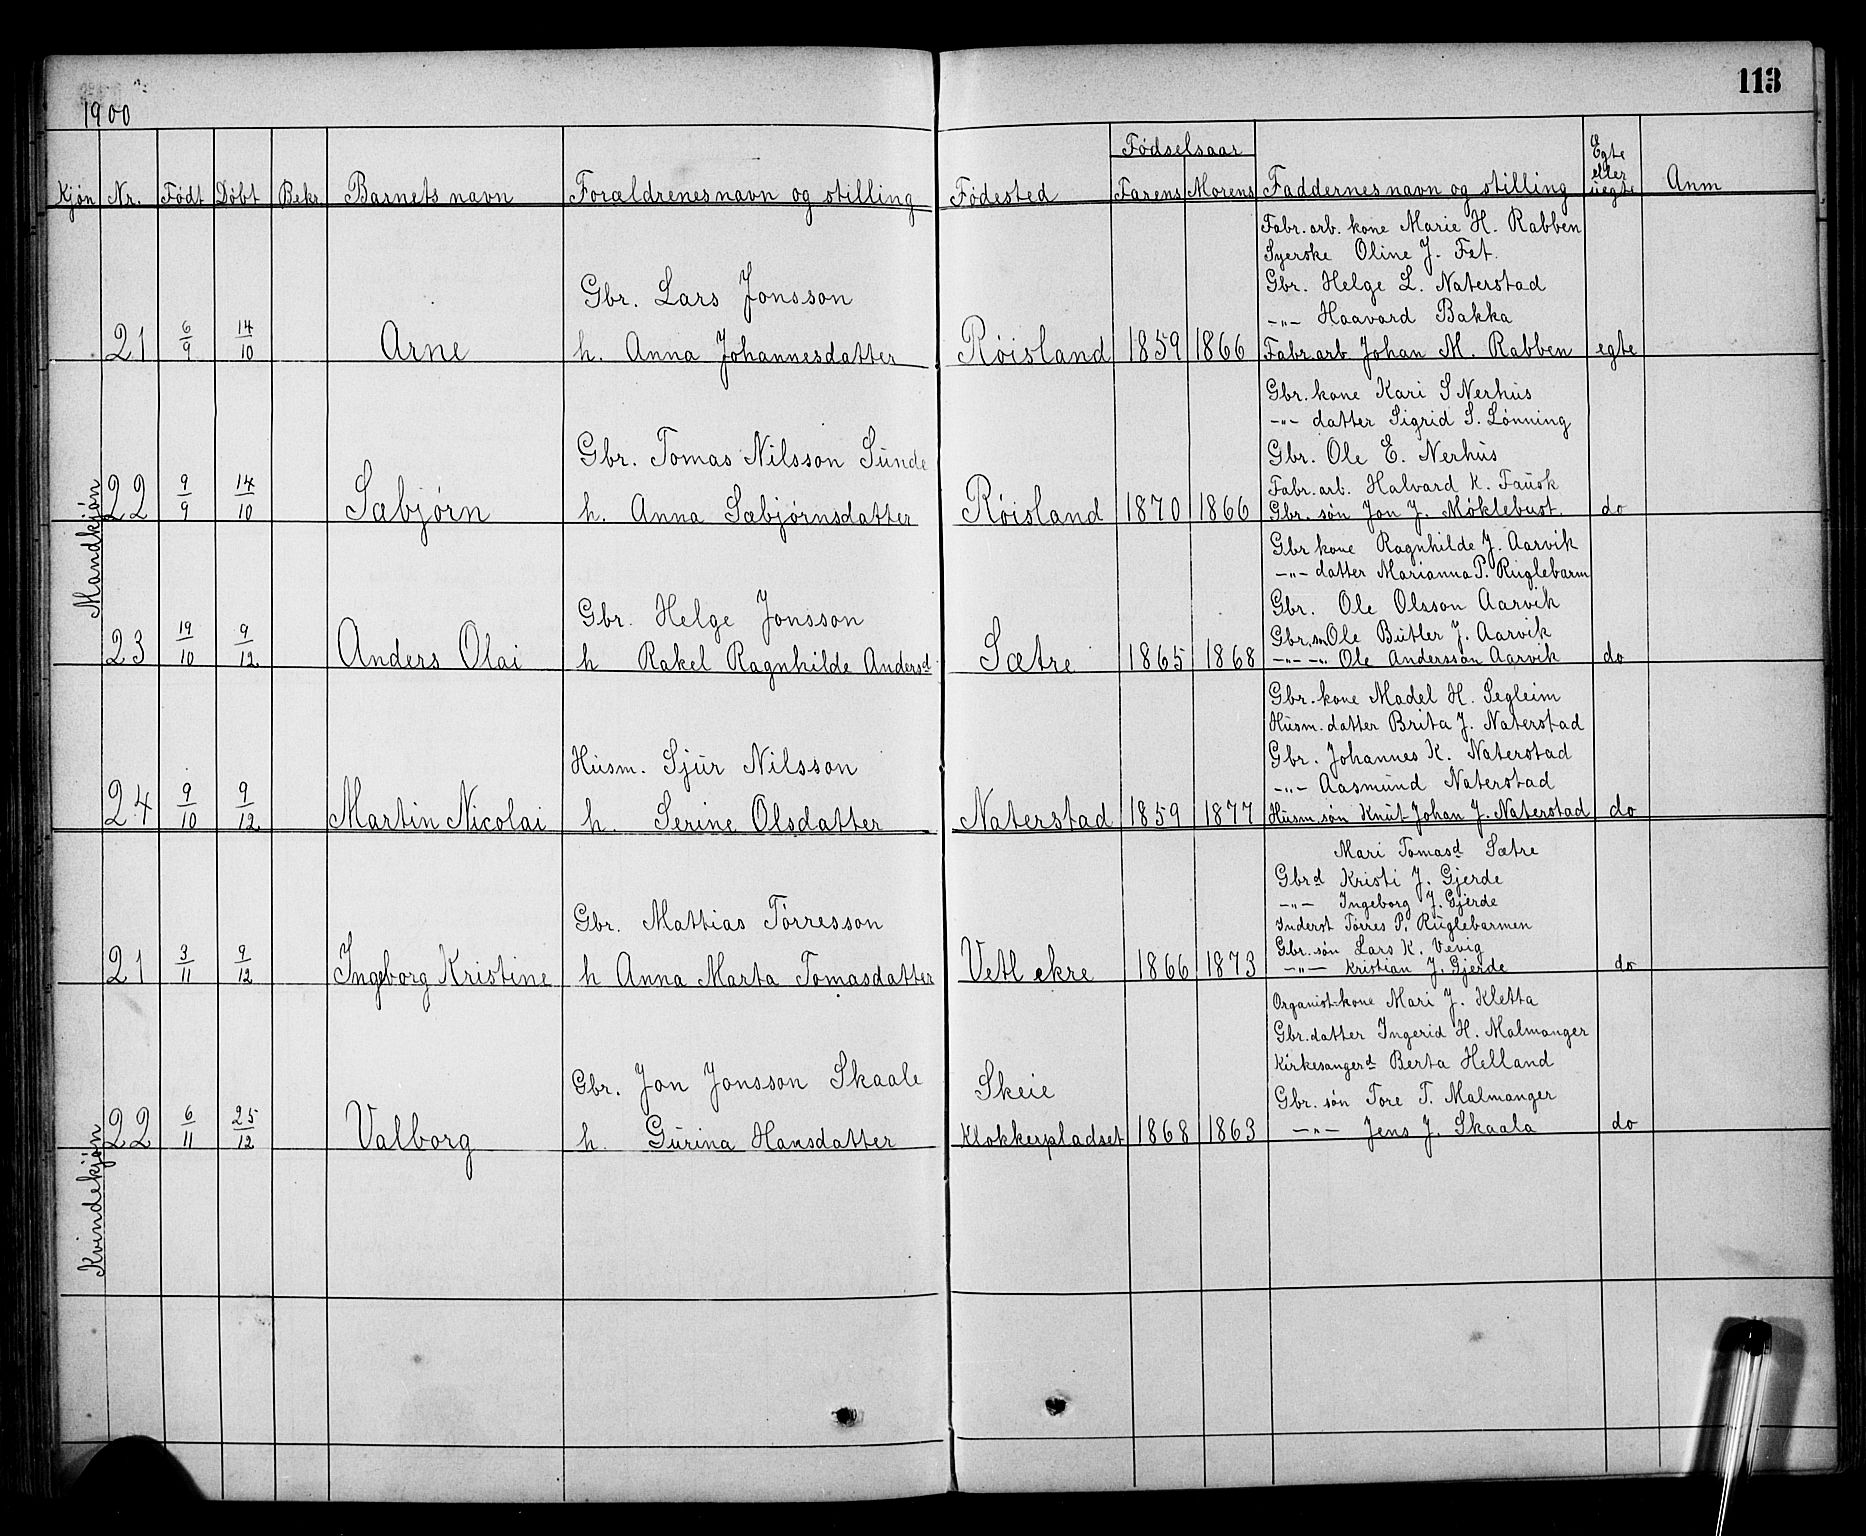 113
1900
Kjøn Nr. Født Døbt Bekr. Barnets navn Forældrenes navn og stilling Fødested Fødselsaar Farens Morens Faddernes navn og stilling Egte eller uegte Anm
Mandkjøn
21 6/9 14/10 Arne
Gbr. Lars Jonsson
h. Anna Johannesdatter
Røisland 1859 1866
Fabr. arb. kone Marie H. Rabben
Syerske Oline J. Fet.
Gbr. Helge L. Naterstad
-"- Haavard Bakka
Fabr. arb Johan M. Rabben
egte
22 9/9 14/10 Sæbjørn
Gbr. Tomas Nilsson Sunde
h. Anna Sæbjørnsdatter
Røisland 1870 1866
Gbr. kone Kari S Nerhus
-"- datter Sigrid S. Lønning
Gbr. Ole E. Nerhus
Fabr. arb. Halvard K. Fausk
Gbr. søn Jon J. Møklebust.
do
23 19/10 9/12 Anders Olai
Gbr. Helge Jonsson
h Rakel Ragnhilde Andersd
Sætre 1865 1868
Gbr kone Ragnhilde J. Aarvik
-"- datter Marianna P. Ruglebarm
Gbr. Ole Olsson Aarvik
Gbr. sn Ole Butler J. Aarvik
-"- -"- Ole Andersson Aarvik
do
24 9/10 9/12 Martin Nicolai
Husm. Sjur Nilsson
h. Serine Olsdatter
Naterstad 1859 1877
Gbr. kone Madel H. Segleim
Husm. datter Brita J. Naterstad
Gbr. Johannes K. Naterstad
-"- Aasmund Naterstad
Husm. søn Knut Johan J. Naterstad
do
Kvindekjøn
21 3/11 9/12 Ingeborg Kristine
Gbr. Mattias Tørresson
h Anna Marta Tomasdatter
Vetl ekre 1866 1873
Mari Tomasd Sætre
Gbrd Kristi J. Gjerde
-"- Ingeborg J. Gjerde
Inderst Tørres P. Ruglebarmen
Gbr. søn Lars K. Vevig
-"- Kristian J. Gjerde
do
22 6/11 25/12 Valborg
Gbr. Jon Jonsson Skaale
h. Gurina Hansdatter
Skeie
Klokkerpladset 1868 1863
Organist-kone Mari J. Kletta
Gbr. datter Ingerid H. Malmanger
Kirkesangerd Berta Helland
Gbr. søn Tore T. Malmanger
-"- Jens J. Skaala
do